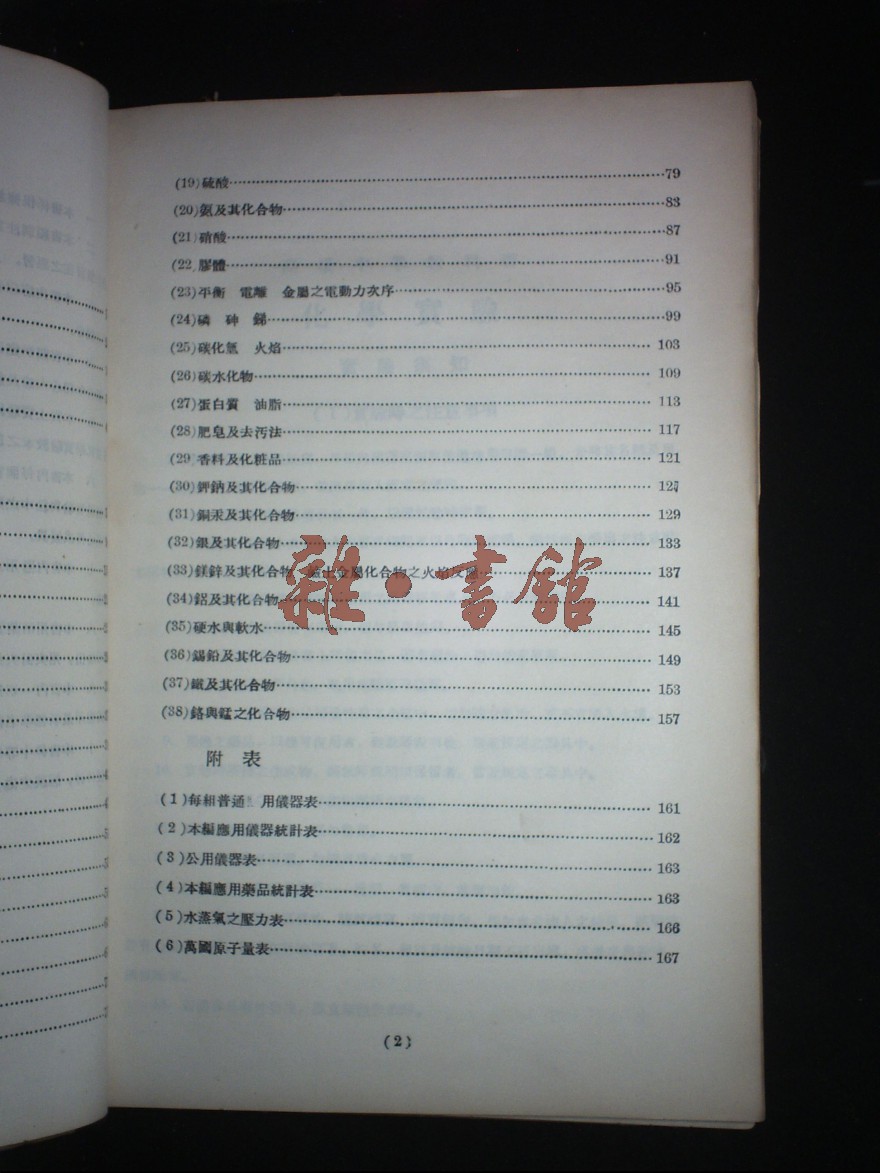 (19)硫酸……79
(20)氨及其化合物……83
(21)硝酸……87
(22)膠體……91
(23)平衡 電離 金屬之電動力次序……95
(24)磷 砷 銻……99
(25)碳化氫 火焰……103
(26)碳水化物……109
(27)蛋白質 油脂……113
(28)肥皂及去汚法……117
(29)香料及化粧品……121
(30)鉀鈉及其化合物……127
(31)銅汞及其化合物……129
(32)銀及其化合物……133
(33)鎂鋅及其化合物 土金屬化合物之火焰反應……137
(34)鋁及其化合物……141
(35)硬水與軟水……145
(36)錫鉛及其化合物……149
(37)鐵及其化合物……153
(38)鉻與錳之化合物……157
雜·書館
附表
(1)每組普通 用儀器表……161
(2)本編應用儀器統計表……162
(3)公用儀器表……163
(4)本編應用藥品統計表……163
(5)水蒸氣之壓力表……166
(6)萬國原子量表……167
(2)